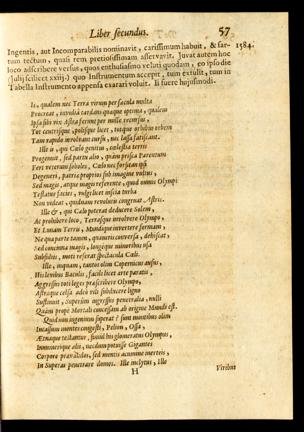 Liber secundus. 57
Ingentis, aut Incomparabilis nominavit, carissimum habuit, & sar-
tum tectum, quasi rem pretiosissimam asservavit. Juvat autem hoc
loco adscribere versus, quos enthusiasmo veluti quodam, eo ipso die
(Julij scilicet xxiij.) quo Instrumentum accepit, tum extulit, tum in
Tabella Instrumento appensa exarari voluit. Ii fuere hujusmodi.
1584.
Is, qualem nec Terra virum per sæcula multa
Procreat, invidiâ tardans quæque optima, qualem
Ipsa sibi vix Astra ferunt per mille
Tot centrisque, polisque licet, totque orbibus orbem
Tam rapido involvant cursu, nec lassa fatiscant.
Ille is, qui Cœlo genitus, cœlestia terris
Progenuit, sed partu alio, quàm prisca Parentum
Fert veterum soboles, Cœlo nec forsitan ipsi
Degeneri, patrio propius sub imagine vultus,
Sed magis, atque magis referente, quod omnis Olympi
Testatur factor, vulget licet inscia turba
Non videat, quidnam revolutis congruat Astris.
Ille &, qui Cælo poterat deducere Solem,
Ac prohibere loco, Terrasque involvere Olympo,
Et Lunam Terris, Mundique invertere formam,
Ne qua parte tamen, quamvis conversa, dehiscat,
Sed concinna magis, longeque minoribus usa
Subsidiis, noti referat spectacula Cæli.
Ille, inquam, tantus olim Copernicus ausus,
His levibus Baculis, facili licet arte paratis,
Aggressus toti leges præscribere Olympo,
Astraque celsa adeò vili subducere ligno
Sustinuit, Superûm ingressus penetralia, nulli
Quàm propè Mortali concessum ab origine Mundi est.
Quid non ingenium superat? sunt montibus olim
Incassum montes congesti, Pelion, Ossa,
Ætnaque testantur, simul his glomeratus Olympus,
Innumerique alii, necdum potuisse Gigantes
Corpore prævalidos, sed mentis acumine inertes,
In Superas penetrare domos. Ille inclytus, Ille
H
Viribus